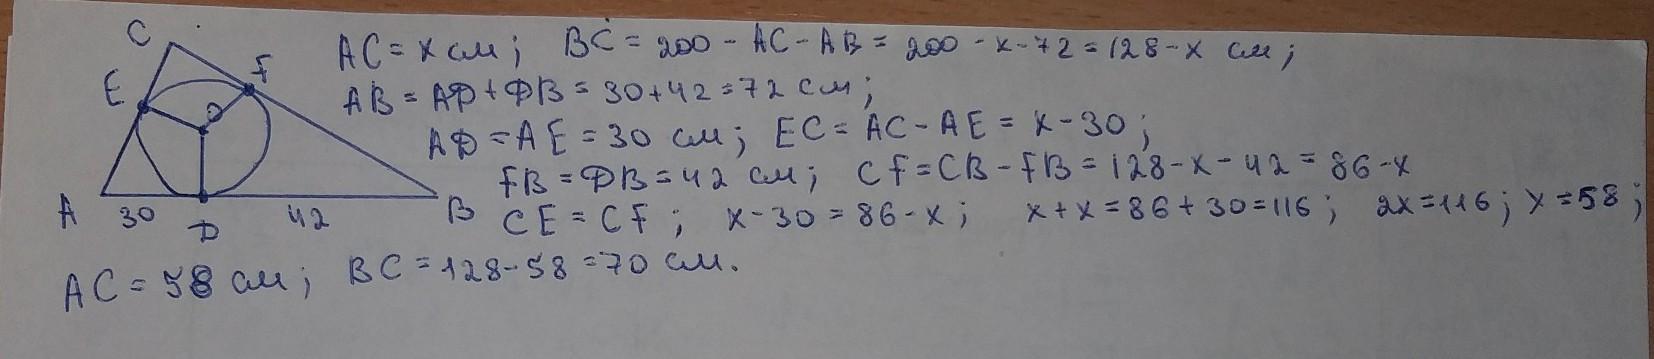 C
F
E
O
A
30
D
42
B
AC = x см; BC = 200 - AC - AB = 200 - x - 72 = 128 - x см;
AB = AD + DB = 30 + 42 = 72 см;
AD = AE = 30 см; EC = AC - AE = x - 30;
FB = DB = 42 см; CF = CB - FB = 128 - x - 42 = 86 - x
CE = CF; x - 30 = 86 - x; x + x = 86 + 30 = 116; 2x = 116; x = 58;
AC = 58 см; BC = 128 - 58 = 70 см.